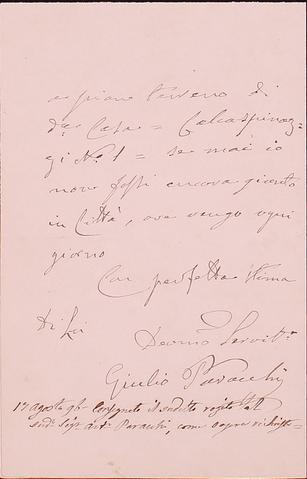 a pian terreno di
d.ᵃ Casa = Calcaspinaz=
zi N.º 1 = se mai io
non fossi ancora giunto
in Città, ove vengo ogni
giorno
Con perfetta stima
Di Lei
Devmo Servit.ʳ
Giulio Paracchi
17 agosto Consegnato il sudetto
sud.º Sig.ʳ Paracchi, come sopra richiesto=